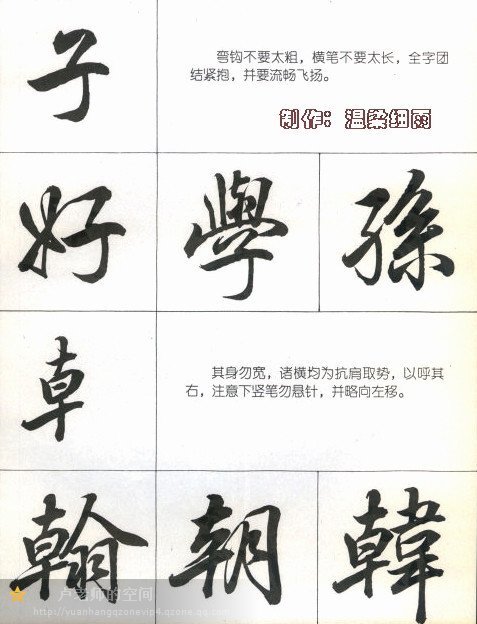 子
弯钩不要太粗，横笔不要太长，全字团
结紧抱，并要流畅飞扬。
制作：温柔细雨
好 學 孫
卓
其身勿宽，诸横均为抗肩取势，以呼其
右，注意下竖笔勿悬针，并略向左移。
翰 朝 韓
卢老师的空间
http://yuanhangqzonevip4.qzone.qq.com